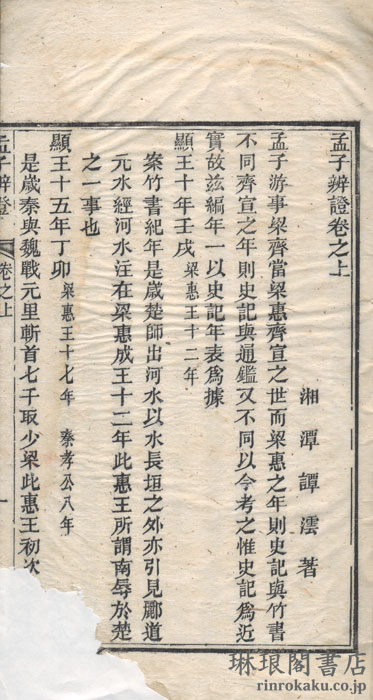 孟子辨證卷之上
湘潭譚澐著
孟子游事梁齊當梁惠齊宣之世而梁惠之年則史記與竹書
不同齊宣之年則史記與通鑑又不同以今考之惟史記爲近
實故兹編年一以史記年表爲據
顯王十年壬戌 梁惠王十二年
案竹書紀年是歲楚師出河水以水長垣之外亦引見酈道
元水經河水注在梁惠成王十二年此惠王所謂南辱於楚
之一事也
顯王十五年丁卯 梁惠王十七年 秦孝公八年
是歲秦與魏戰元里斬首七千取少梁此惠王初次
孟子辨證 卷之上 一
琳琅閣書店
rinrokaku.co.jp